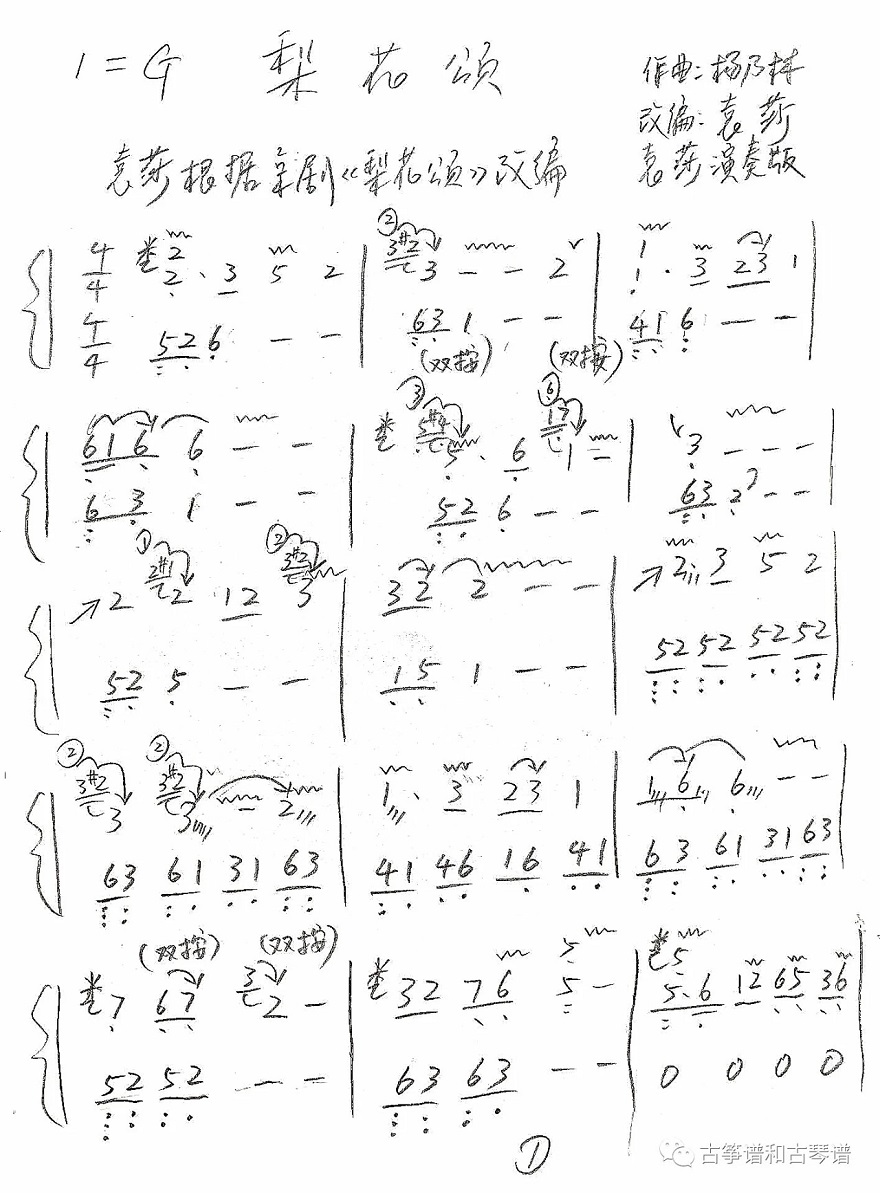 1=G 梨花颂
作曲:杨乃林
改编:袁莎
袁莎演奏版
袁莎根据京剧《梨花颂》改编
4/4 2 2· 3 5 2 | ② 3#2 3 — — 2 | 1 1· 3 23 1
4/4 526 — — | 63 1 — — | 41 6 — —
(双按) (双按)
616 6 — — | ③ 5#4 5· 6 ⑥ 17 1 — | 3 — — —
63 1 — — | 52 6 — — | 63 2 — —
2 ① 2#1 2 12 ② 3#2 3 | 32 2 — — | 2 3 5 2
52 5 — — | 15 1 — — | 52 52 52 52
② 3#2 3 ② 3#2 3 — 2 | 1· 3 23 1 | 16 6 — —
63 61 31 63 | 41 46 16 41 | 63 61 31 63
(双按) (双按)
7 67 3 2 — | 32 76 5 5 — | 5 5·6 12 65 36
52 52 — — | 63 63 — — | 0 0 0 0
①
古筝谱和古琴谱